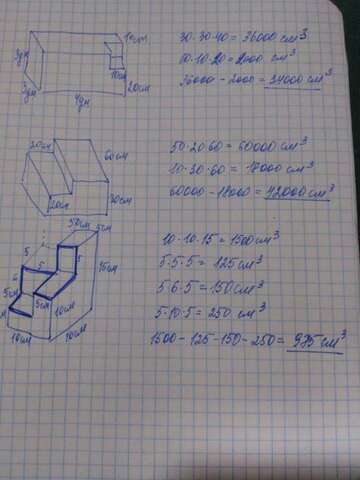 3дм
3дм
4дм
10см
10см
20см
30·30·40 = 36000 см³
10·10·20 = 2000 см³
36000 - 2000 = 34000 см³
20см
60см
20см
30см
50·20·60 = 60000 см³
10·30·60 = 18000 см³
60000 - 18000 = 42000 см³
5см
5
5
5
5см
5см
10см
15см
10см
10см
10·10·15 = 1500 см³
5·5·5 = 125 см³
5·6·5 = 150 см³
5·10·5 = 250 см³
1500 - 125 - 150 - 250 = 975 см³